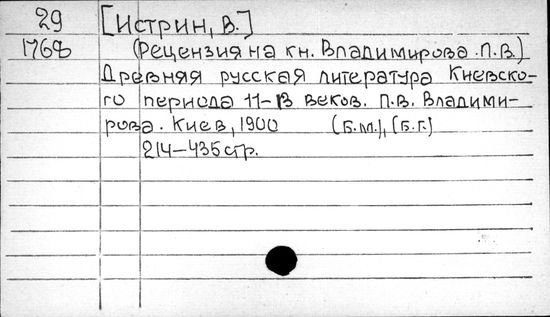 29 [Истрин, В.]
1768 (Рецензия на кн. Владимирова .П.В.)
Древняя русская литература Киевско-
го периода 11–13 веков. П.В. Владими-
рова. Киев, 1900 (Б.м.), (Б.г.)
214–435 стр.